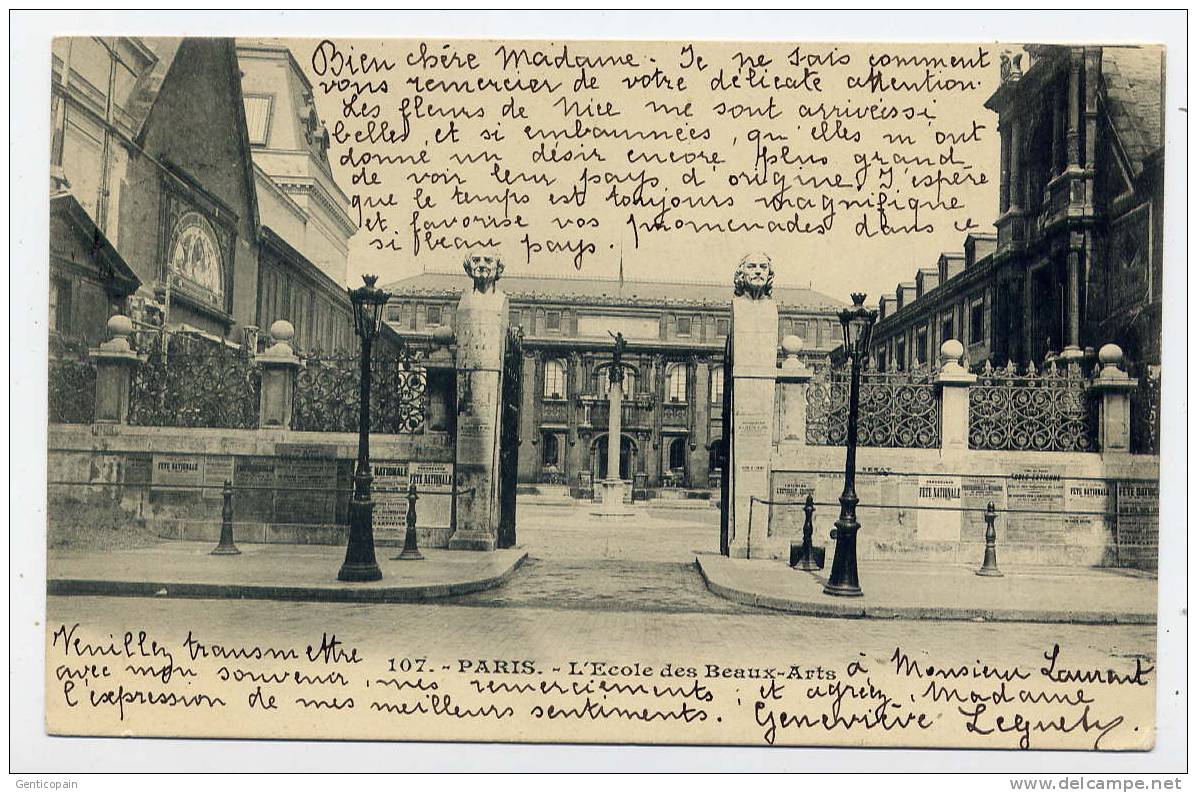 Bien chére Madame. Je ne sais comment
vous remercier de votre délicate attention.
Les fleurs de Nice me sont arrivées si
belles, et si embaumées, qu'elles m'ont
donné un désir encore plus grand
de voir leur pays d'origine. J'espère
que le temps est toujours magnifique
et favorise vos promenades dans ce
si beau pays.
NATIONALE
FÊTE NATIONALE
FÊTE NATIONALE
NATIONALE
FÊTE NATIONALE
SENAT
FÊTE NATIONALE
FÊTE NATIONALE
FÊTE NATIONALE
107. - PARIS. - L'Ecole des Beaux-Arts
Veuillez transmettre à Monsieur Laurent
avec mon souvenir, mes remerciements et agréez, Madame
l'expression de mes meilleurs sentiments. Geneviève
Genticopain
http://www.delcampe.net